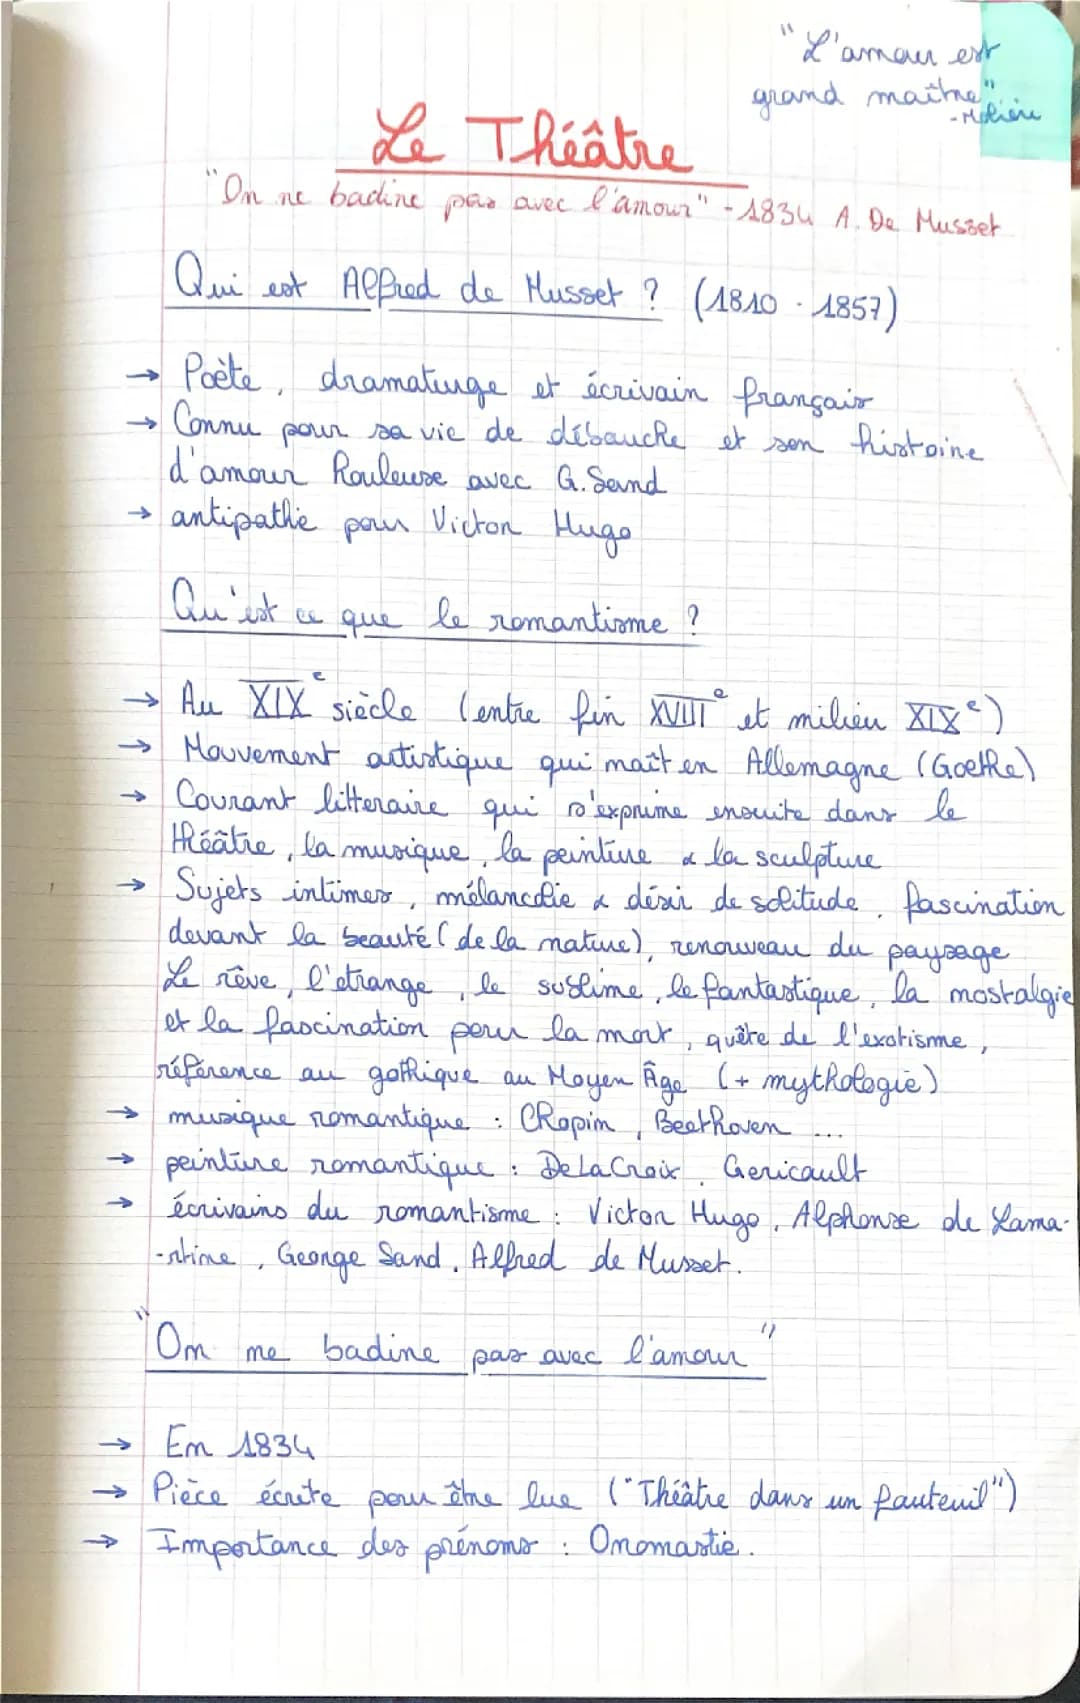 "L'amour est
grand maître"
- Molière
Le Théâtre
"On ne badine pas avec l'amour" - 1834 A. De Musset
Qui est Alfred de Musset ? (1810 - 1857)
→ Poète, dramaturge et écrivain français
→ Connu pour sa vie de débauche et son histoire
d'amour houleuse avec G. Sand
→ antipathie pour Victor Hugo
Qu'est ce que le romantisme ?
→ Au XIXe siècle (entre fin XVIIIe et milieu XIXe)
→ Mouvement artistique qui naît en Allemagne (Goethe)
→ Courant litteraire qui s'exprime ensuite dans le
théâtre, la musique, la peinture & la sculpture
→ Sujets intimes, mélancolie & désir de solitude, fascination
devant la beauté (de la nature), renouveau du paysage
Le rêve, l'étrange, le sublime, le fantastique, la nostalgie
et la fascination pour la mort, quête de l'exotisme,
référence au gothique au Moyen Âge (+ mythologie)
→ musique romantique : Chopin, Beethoven ...
→ peinture romantique : DeLaCroix, Gericault
→ écrivains du romantisme : Victor Hugo, Alphonse de Lama-
-rtine, George Sand, Alfred de Musset.
"On ne badine pas avec l'amour"
→ En 1834
→ Pièce écrite pour être lue ("Théâtre dans un fauteuil")
→ Importance des prénoms : Onomastie.